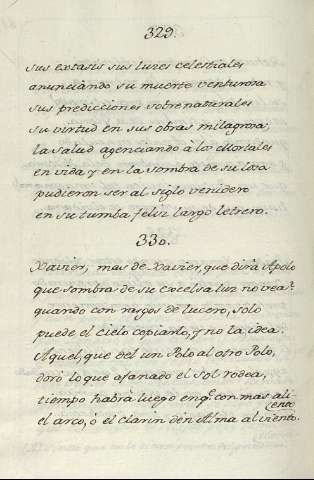 329.
sus extasis sus luzes celestiales
anunciando su muerte venturosa
sus predicciones sobrenaturales
su virtud en sus obras milagrosa;
la salud agenciando à los Mortales
en vida y en la sombra de su losa
pudieron ser al siglo venidero
en su tumba feliz largo letrero.
330.
Xavier, mas de Xavier, que dirà Apolo
que sombra de su excelsa luz no sea?
quando con rasgos de lucero, sólo
puede el Cielo copiarlo, y no la idea.
Aquel, que del un Polo al otro Polo,
doró lo que afanado el Sol rodea,
tiempo habrá luego enq.e con mas aliento
el arco, ó el clarin den Alma al viento.